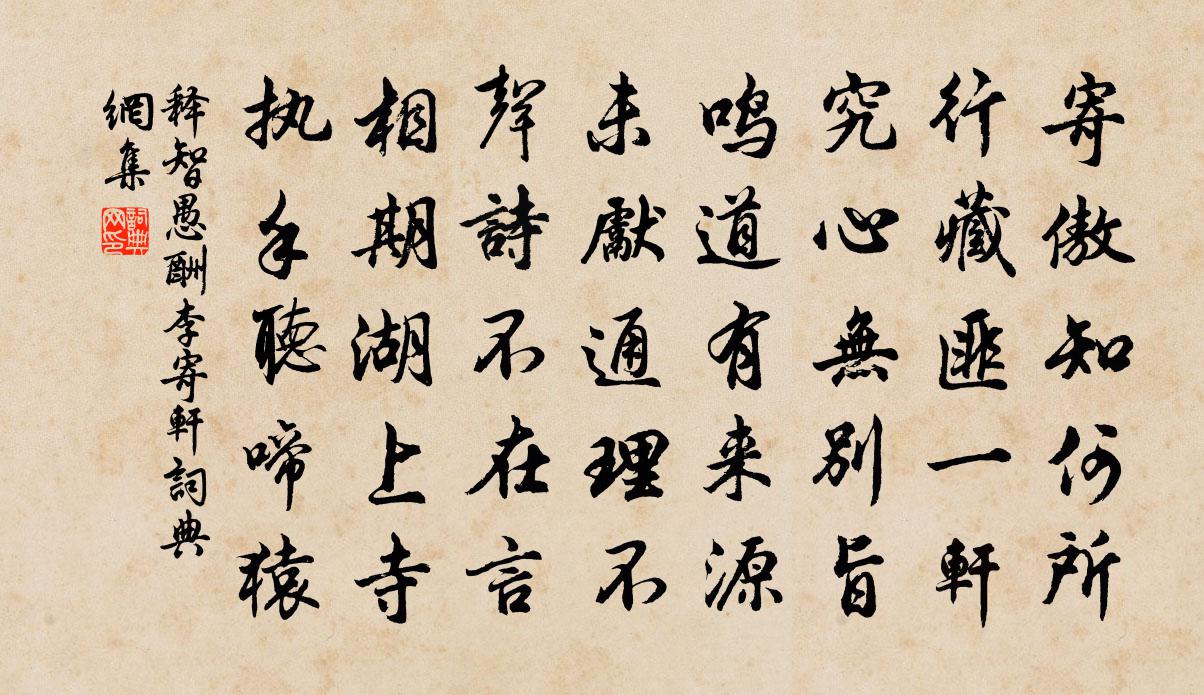 寄傲知何所
行藏匪一軒
究心無別旨
鸣道有来源
未獻通理不
聲詩不在言
相期湖上寺
执手聽啼猿
释智愚酬李寄軒詞典
網集
詞典網印